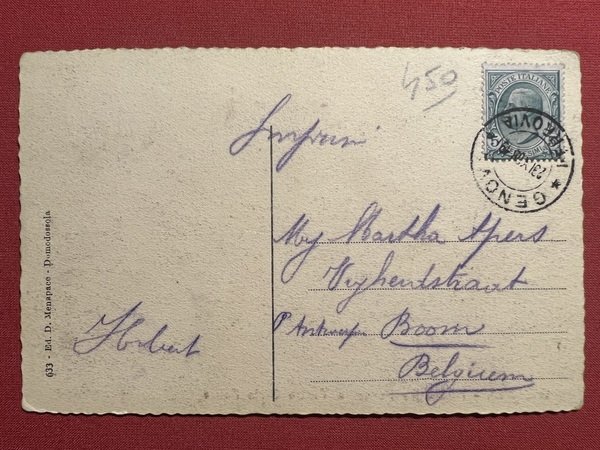 450
POSTE ITALIANE
GENOVA FERROVIA
Imprimé
My Martha Apers
Vrijheidstraat
P Antwerp Boom
Belgium
Hubert
633 - Ed. D. Menapace - Domodossola